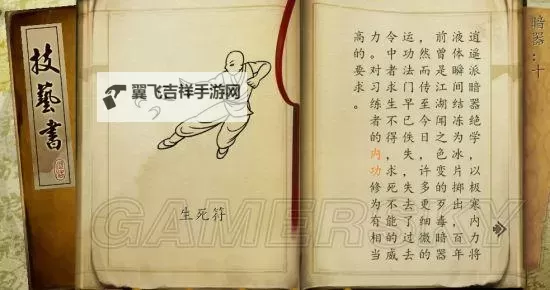 暗器:十
逍遥派暗器绝学,以极寒内力将
液体瞬间结冻为冰片掷出,百年
前曾是江湖闻之色变的歹毒暗器
,然而传至今日,许多更细微的
运功法门早已佚失,失去了过去
令中者求生不得,求死不能的威
力。对习练者的内功修为有相当
高的要求。
翼飞吉祥手游网
生死符
技藝書
GAMERSKY